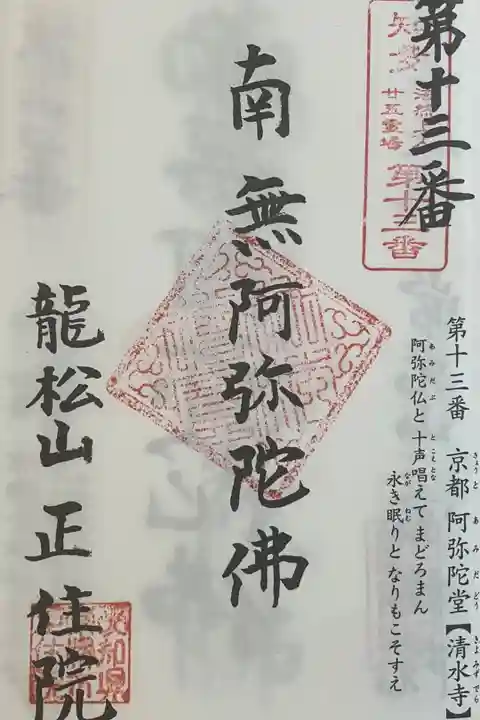 第十三番
廿五霊場
第十三番
第十三番 京都 阿弥陀堂【清水寺】
阿弥陀仏と 十声唱えて まどろまん
永き眠りと なりもこそすえ
南無阿弥陀佛
龍松山 正住院